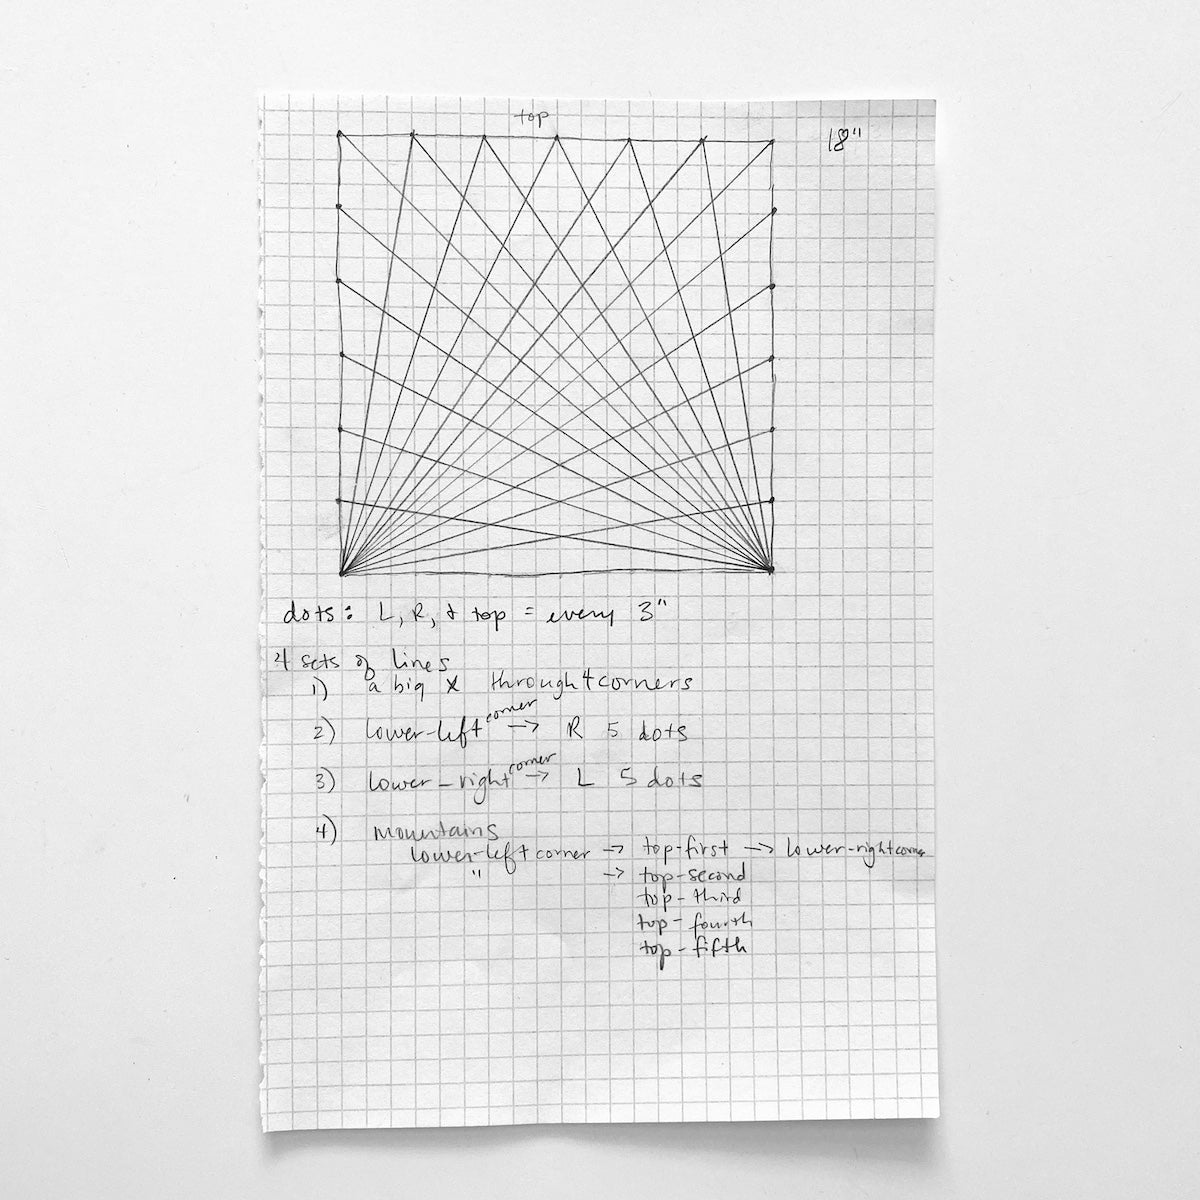 top
18"
dots: L, R, & top = every 3"
4 sets of lines
1) a big X through 4 corners
2) lower-left corner → R 5 dots
3) lower-right corner → L 5 dots
4) Mountains
lower-left corner → top-first → lower-right corner
" → top-second
top-third
top-fourth
top-fifth